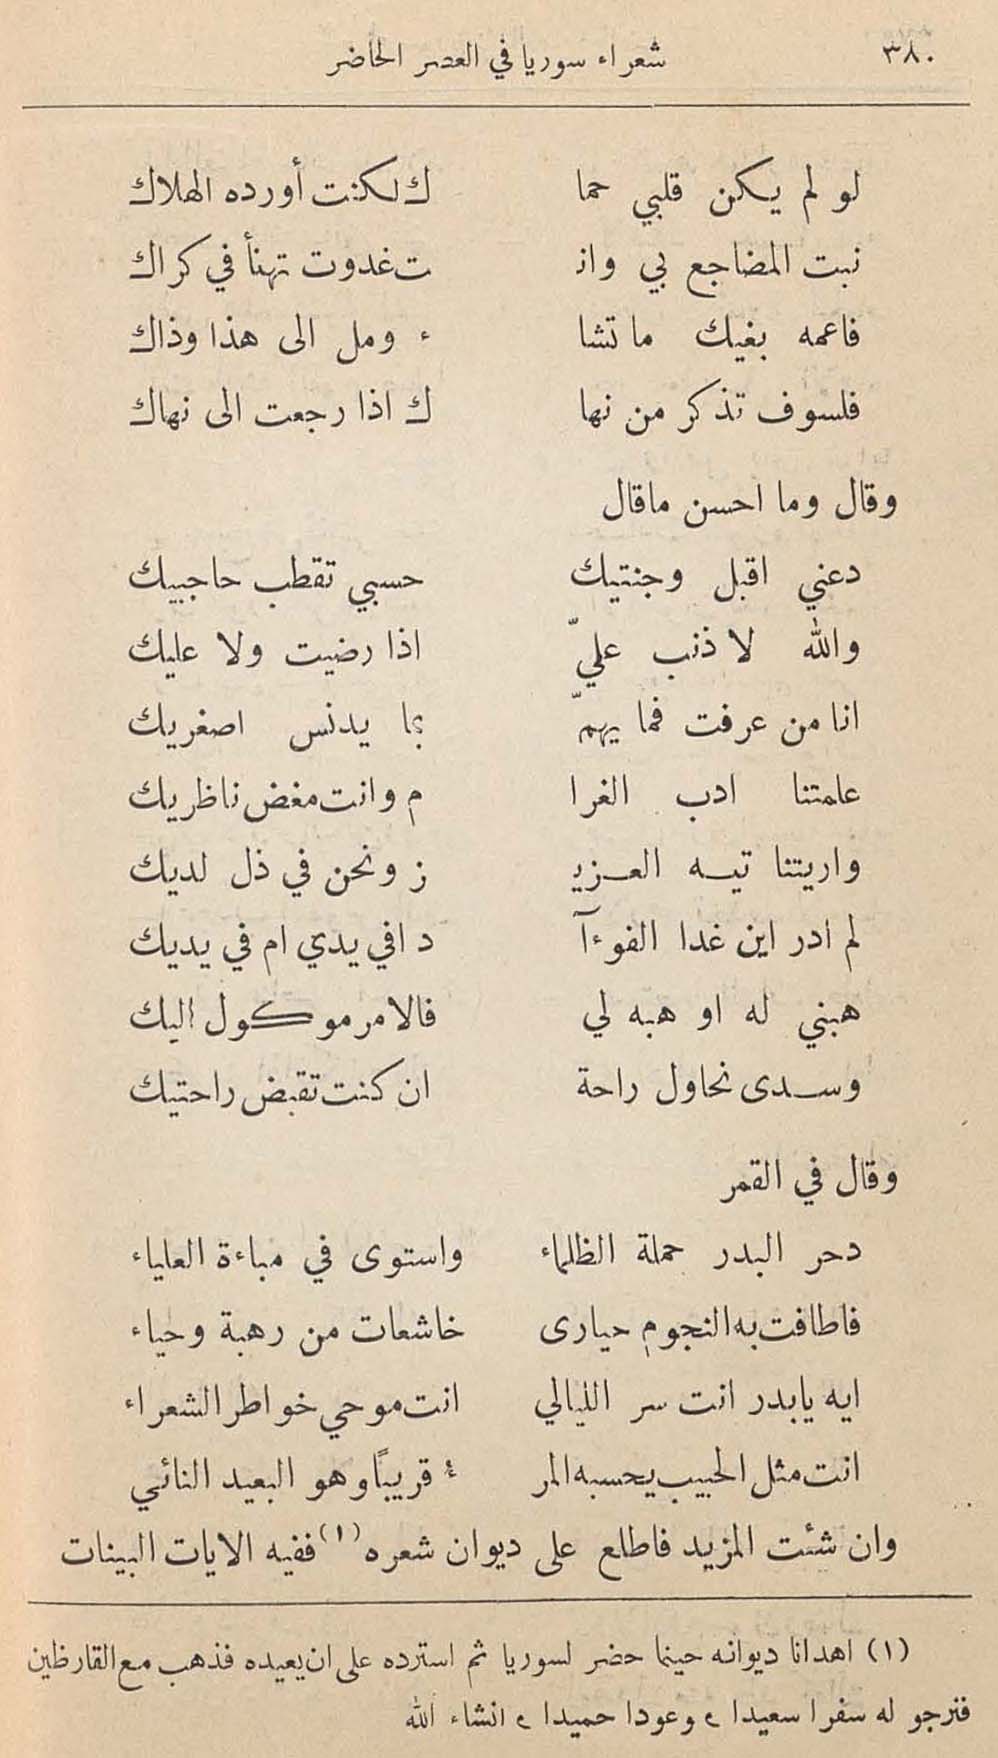 ٣٨٠ شعراء سوريا في العصر الحاضر
لو لم يكن قلبي حما ك لكنت أورده الهلاك
نبت المضاجع بي وانـ ت غدوت تهنأ في كراك
فاعمه بغيك ما تشا ء ومل الى هذا وذاك
فلسوف تذكر من نها ك اذا رجعت الى نهاك
وقال وما احسن ماقال
دعني اقبل وجنتيك حسبي تقطب حاجبيك
والله لا ذنب عليّ اذا رضيت ولا عليك
انا من عرفت فما يهمّ بما يدنس اصغريك
علمتنا ادب الغرا م وانت مغض ناظريك
واريتنا تيه العزيـ ز ونحن في ذل لديك
لم ادر اين غدا الفوءآ د افي يدي ام في يديك
هبني له او هبه لي فالامر موكول اليك
وسدى نحاول راحة ان كنت تقبض راحتيك
وقال في القمر
دحر البدر حملة الظلماء واستوى في مباءة العلياء
فاطافت به النجوم حيارى خاشعات من رهبة وحياء
ايه يابدر انت سر الليالي انت موحي خواطر الشعراء
انت مثل الحبيب يحسبه المر ء قريبًا وهو البعيد النائي
وان شئت المزيد فاطلع على ديوان شعره (١) ففيه الايات البينات
(١) اهدانا ديوانه حينما حضر لسوريا ثم استرده على ان يعيده فذهب مع القارظين
فنرجو له سفرا سعيدا ، وعودا حميدا ، انشاء الله